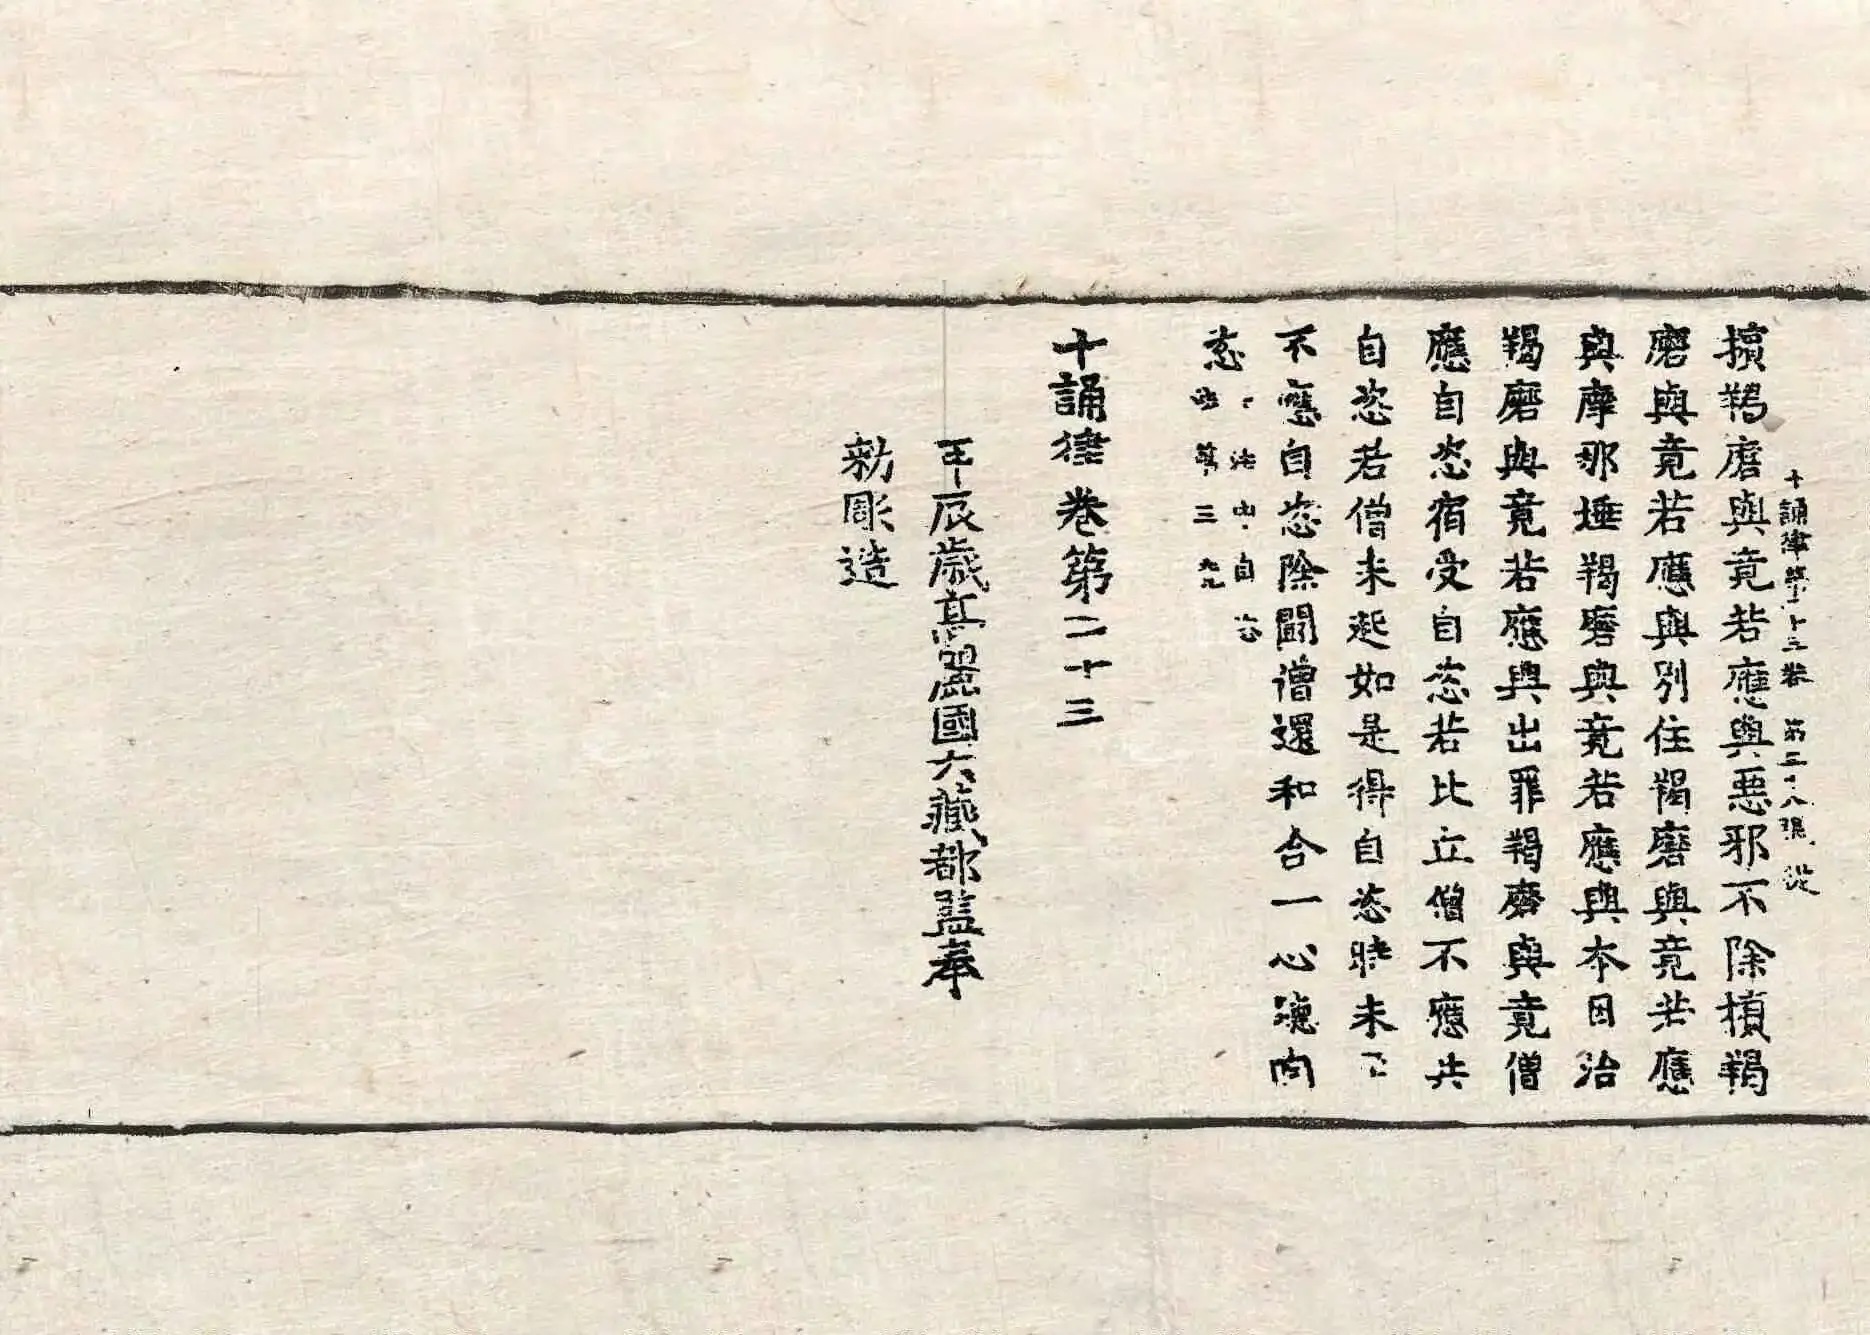 十誦律第二十三卷 第二十八張 從
擯羯磨與竟若應與惡邪不除擯羯
磨與竟若應與別住羯磨與竟若應
與摩那埵羯磨與竟若應與本因治
羯磨與竟若應與出罪羯磨與竟僧
應自恣宿受自恣若比丘僧不應共
自恣若僧未起如是得自恣時未
不應自恣除鬪僧還和合一心
恣 法 自恣
第三
十誦律卷第二十三
壬辰歲高麗國大藏都監奉
勅彫造